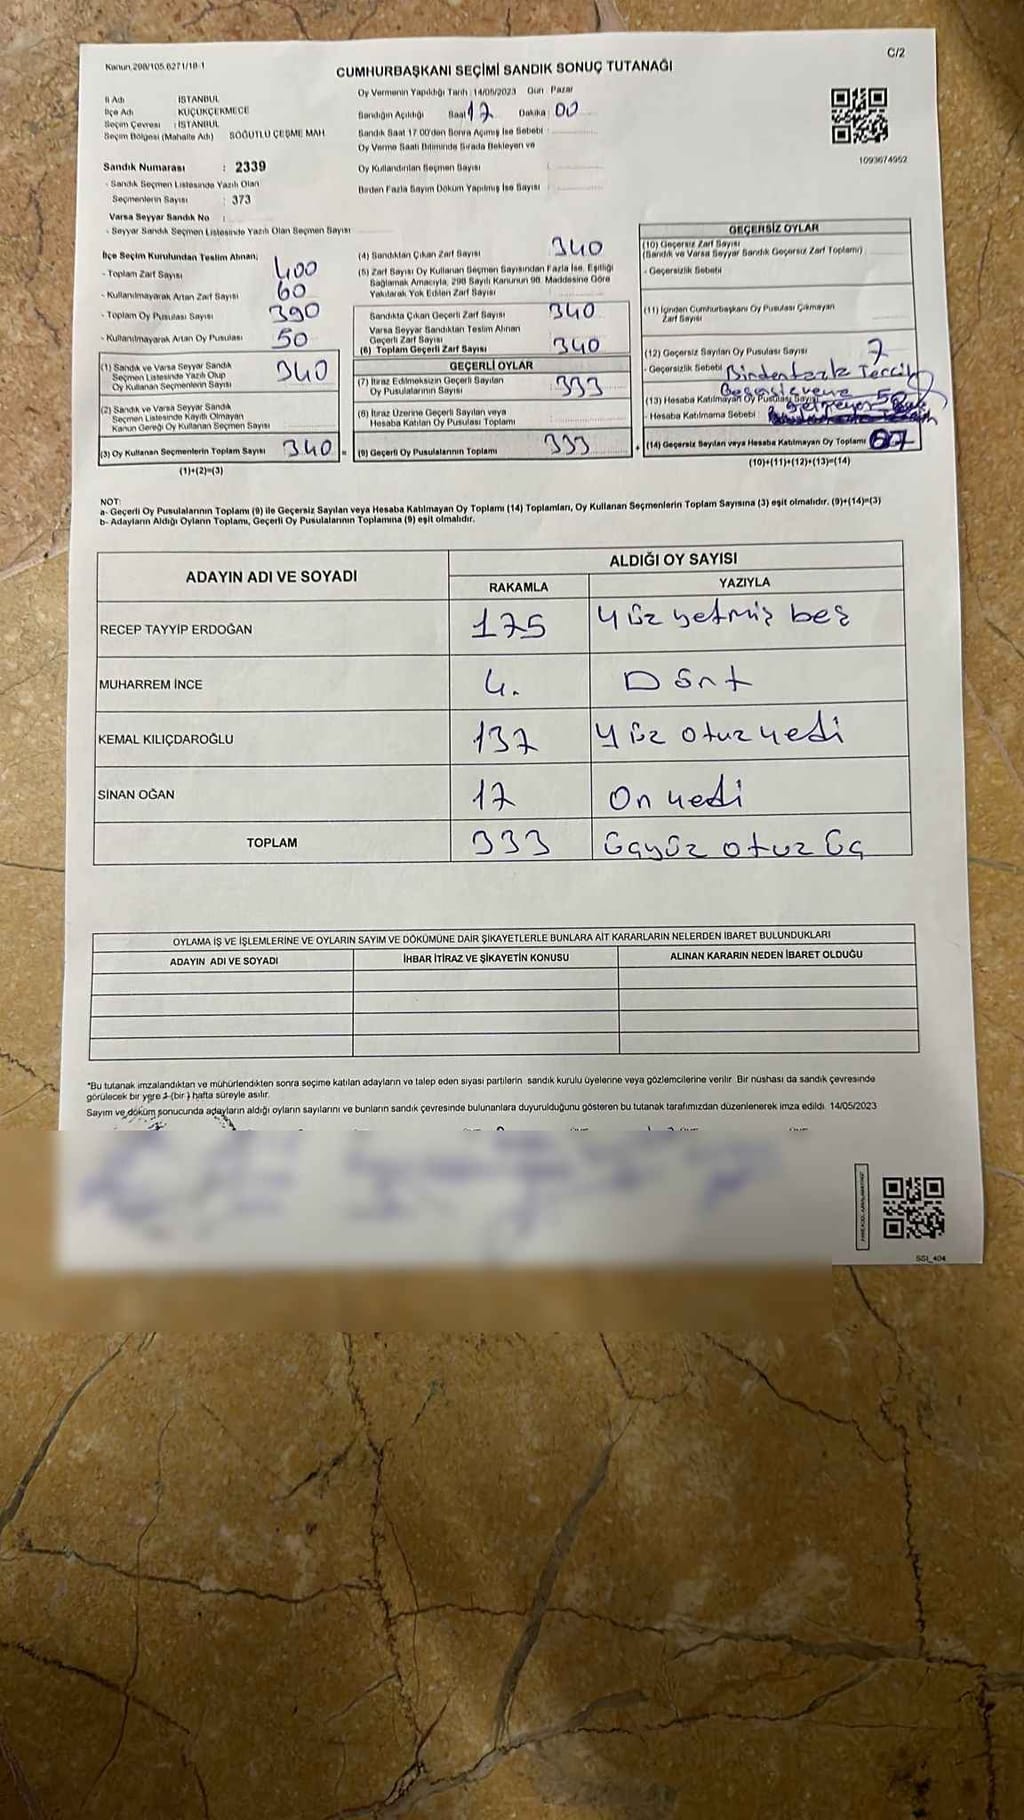 C/2
Kanun 298/105.6271/18-1
CUMHURBAŞKANI SEÇİMİ SANDIK SONUÇ TUTANAĞI
İl Adı İSTANBUL
İlçe Adı KÜÇÜKÇEKMECE
Seçim Çevresi : İSTANBUL
Seçim Bölgesi (Mahalle Adı) SÖĞÜTLÜ ÇEŞME MAH
Oy Vermenin Yapıldığı Tarih : 14/05/2023 Gün Pazar
Sandığın Açıldığı Saat 17 Dakika 00
Sandık Saat 17 00'den Sonra Açılmış İse Sebebi
Oy Verme Saati Bitiminde Sırada Bekleyen ve
Oy Kullandırılan Seçmen Sayısı
Birden Fazla Sayım Döküm Yapılmış İse Sayısı
1093674952
Sandık Numarası : 2339
- Sandık Seçmen Listesinde Yazılı Olan
Seçmenlerin Sayısı : 373
Varsa Seyyar Sandık No :
- Seyyar Sandık Seçmen Listesinde Yazılı Olan Seçmen Sayısı
İlçe Seçim Kurulundan Teslim Alınan;
- Toplam Zarf Sayısı 400
- Kullanılmayarak Artan Zarf Sayısı 60
- Toplam Oy Pusulası Sayısı 390
- Kullanılmayarak Artan Oy Pusulası 50
(1) Sandık ve Varsa Seyyar Sandık
Seçmen Listesinde Yazılı Olup
Oy Kullanan Seçmenlerin Sayısı 340
(2) Sandık ve Varsa Seyyar Sandık
Seçmen Listesinde Kayıtlı Olmayan
Kanun Gereği Oy Kullanan Seçmen Sayısı
(3) Oy Kullanan Seçmenlerin Toplam Sayısı 340 =
(1)+(2)=(3)
(4) Sandıktan Çıkan Zarf Sayısı 340
(5) Zarf Sayısı Oy Kullanan Seçmen Sayısından Fazla İse, Eşitliği
Sağlamak Amacıyla, 298 Sayılı Kanunun 98. Maddesine Göre
Yakılarak Yok Edilen Zarf Sayısı
Sandıkta Çıkan Geçerli Zarf Sayısı 340
Varsa Seyyar Sandıktan Teslim Alınan
Geçerli Zarf Sayısı
(6) Toplam Geçerli Zarf Sayısı 340
GEÇERLİ OYLAR
(7) İtiraz Edilmeksizin Geçerli Sayılan
Oy Pusulalarının Sayısı 333
(8) İtiraz Üzerine Geçerli Sayılan veya
Hesaba Katılan Oy Pusulası Toplamı
(9) Geçerli Oy Pusulalarının Toplamı 333 +
GEÇERSİZ OYLAR
(10) Geçersiz Zarf Sayısı
(Sandık ve Varsa Seyyar Sandık Geçersiz Zarf Toplamı)
- Geçersizlik Sebebi
(11) İçinden Cumhurbaşkanı Oy Pusulası Çıkmayan
Zarf Sayısı
(12) Geçersiz Sayılan Oy Pusulası Sayısı 7
- Geçersizlik Sebebi Birden fazla Tercih
(13) Hesaba Katılmayan Oy Pusulası Sayısı
- Hesaba Katılmama Sebebi
(14) Geçersiz Sayılan veya Hesaba Katılmayan Oy Toplamı 7
(10)+(11)+(12)+(13)=(14)
NOT:
a- Geçerli Oy Pusulalarının Toplamı (9) ile Geçersiz Sayılan veya Hesaba Katılmayan Oy Toplamı (14) Toplamları, Oy Kullanan Seçmenlerin Toplam Sayısına (3) eşit olmalıdır. (9)+(14)=(3)
b- Adayların Aldığı Oyların Toplamı, Geçerli Oy Pusulalarının Toplamına (9) eşit olmalıdır.
ADAYIN ADI VE SOYADI ALDIĞI OY SAYISI
RAKAMLA YAZIYLA
RECEP TAYYİP ERDOĞAN 175 Yüz yetmiş beş
MUHARREM İNCE 4. Dört
KEMAL KILIÇDAROĞLU 137 Yüz otuz yedi
SİNAN OĞAN 17 On yedi
TOPLAM 333 Üçyüz otuz üç
OYLAMA İŞ VE İŞLEMLERİNE VE OYLARIN SAYIM VE DÖKÜMÜNE DAİR ŞİKAYETLERLE BUNLARA AİT KARARLARIN NELERDEN İBARET BULUNDUKLARI
ADAYIN ADI VE SOYADI İHBAR İTİRAZ VE ŞİKAYETİN KONUSU ALINAN KARARIN NEDEN İBARET OLDUĞU
*Bu tutanak imzalandıktan ve mühürlendikten sonra seçime katılan adayların ve talep eden siyasi partilerin sandık kurulu üyelerine veya gözlemcilerine verilir. Bir nüshası da sandık çevresinde
görülecek bir yere 1 (bir) hafta süreyle asılır.
Sayım ve döküm sonucunda adayların aldığı oyların sayılarını ve bunların sandık çevresinde bulunanlara duyurulduğunu gösteren bu tutanak tarafımızdan düzenlenerek imza edildi. 14/05/2023
SSI_404